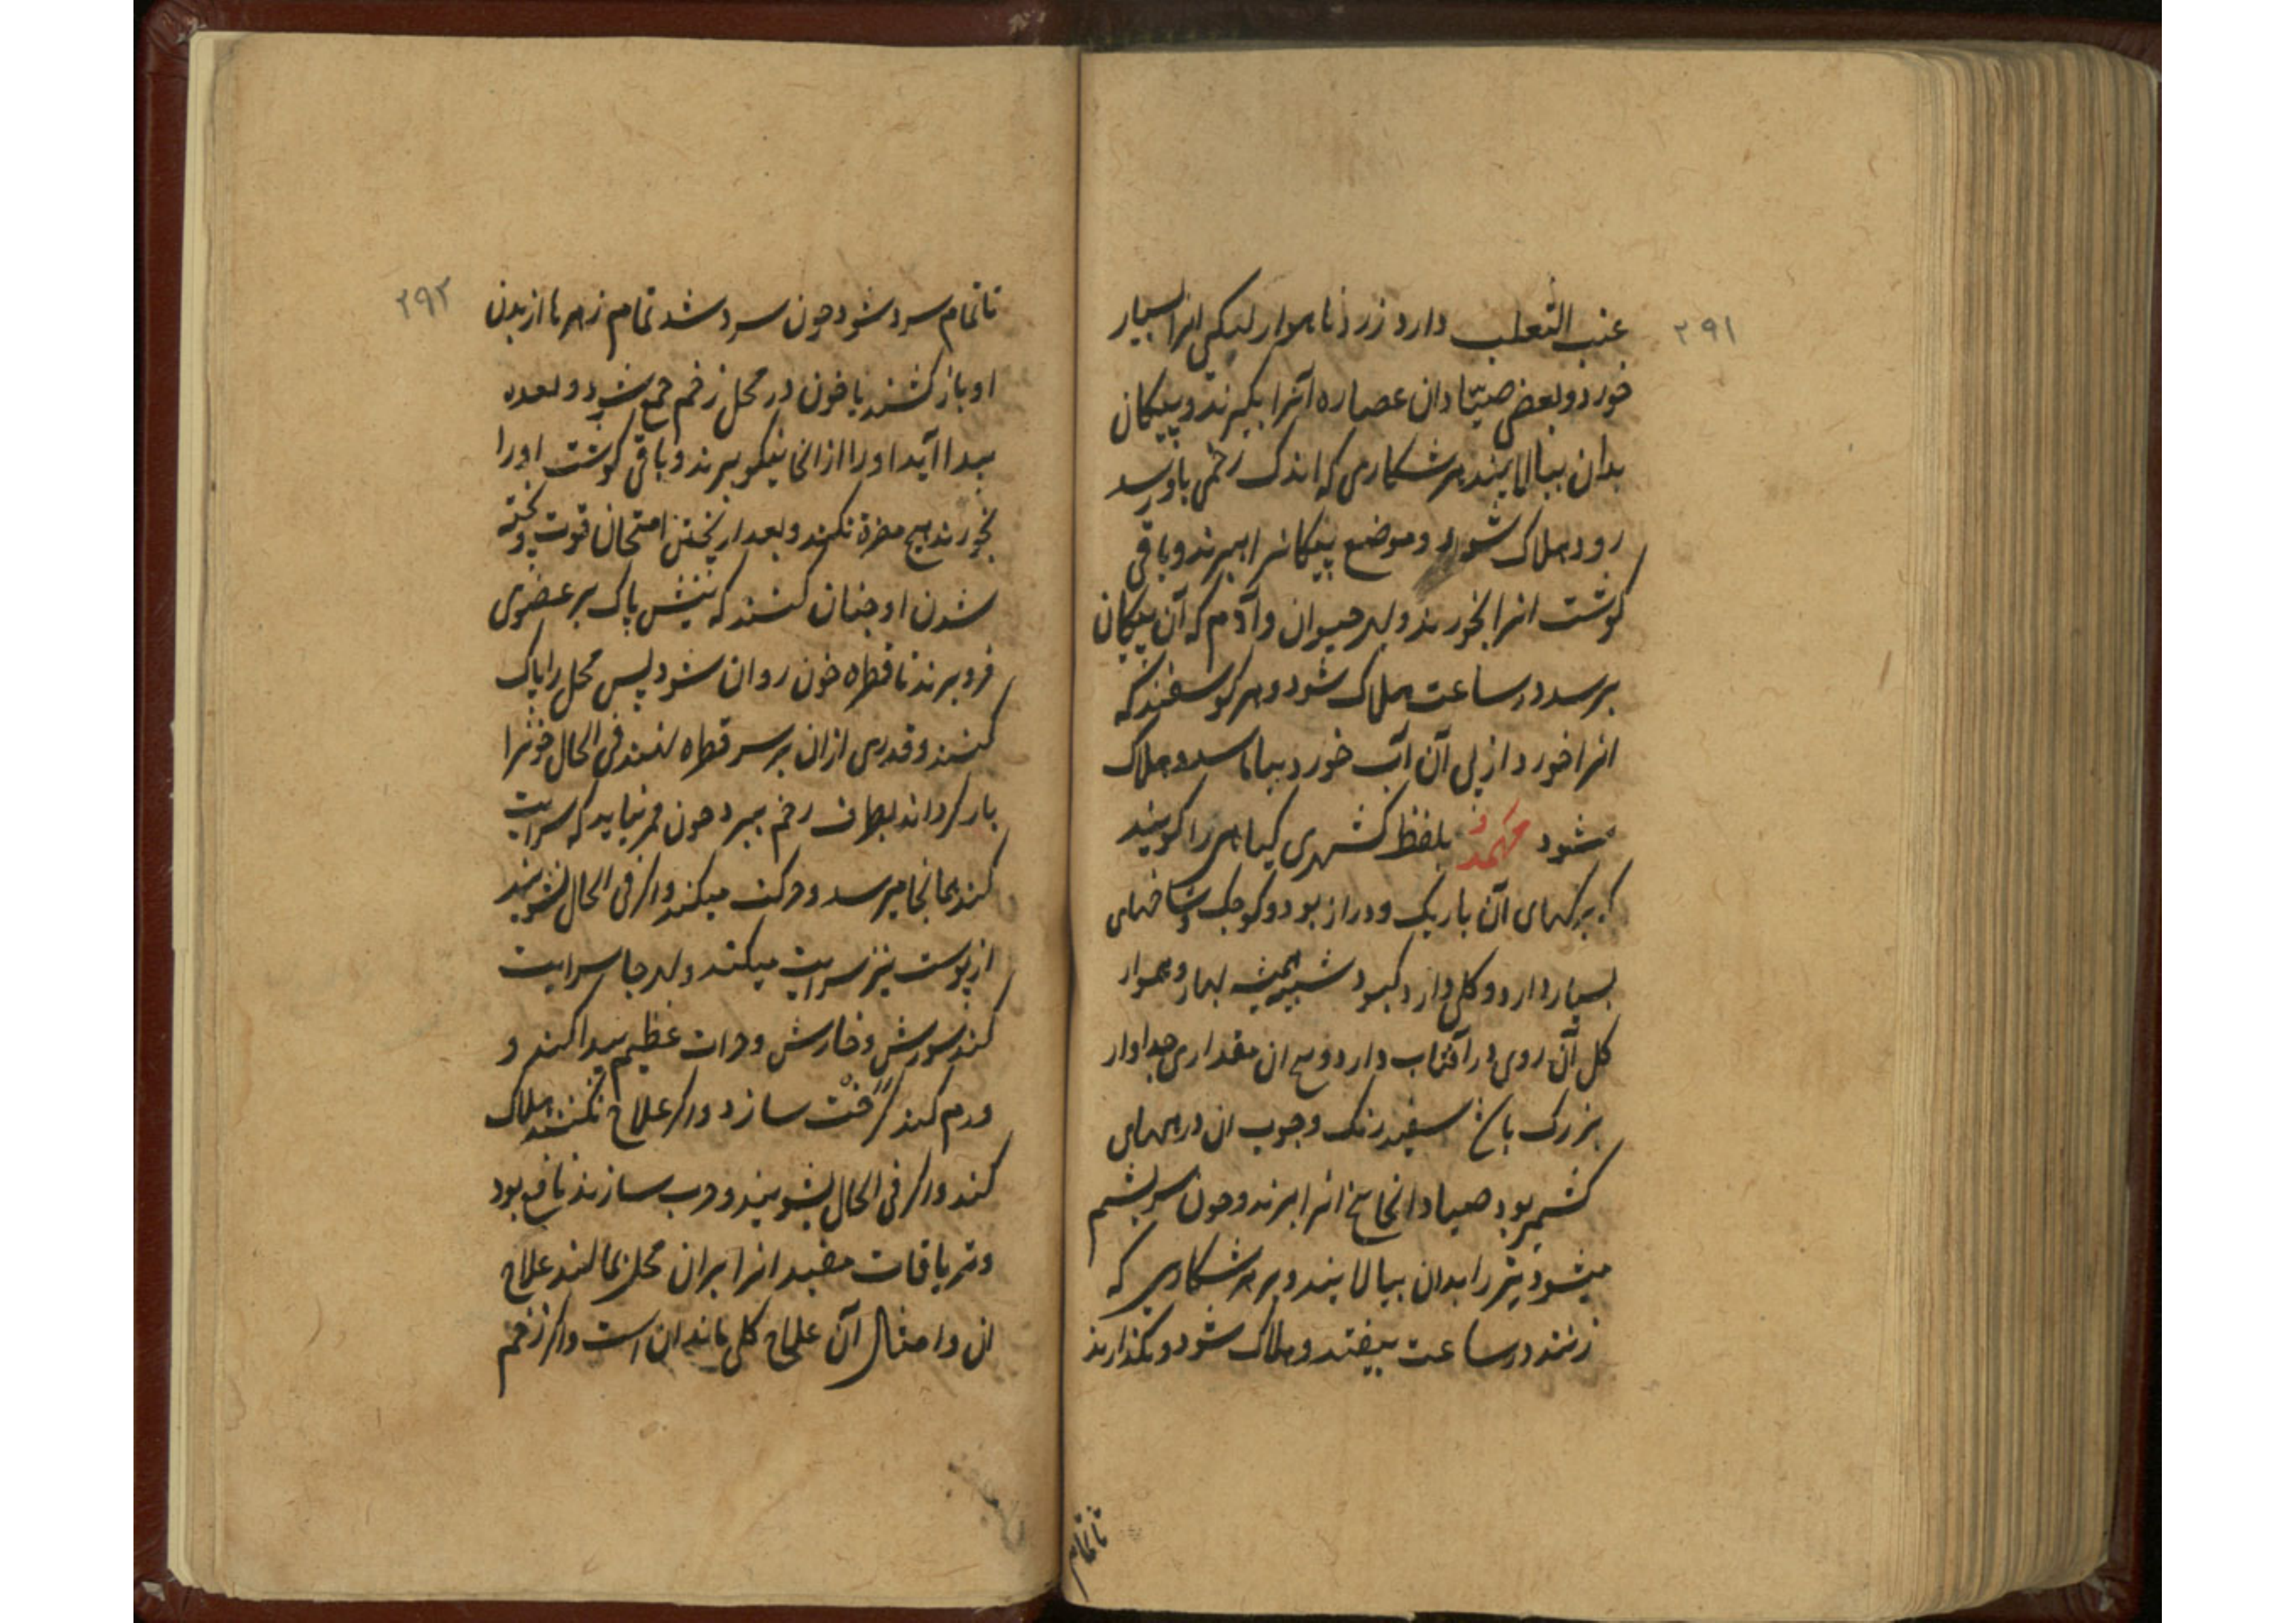 ۲۹۱
عنب الثعلب دارد زرد ناهموار لیکن انرا بسیار
خورد و بعضی صیّادان عصاره آنرا بکیرند و پیکان
بدان بیالایند هر شکاری که اندک زخمی باو رسد
رود هلاک شود و موضع پیکانرا ببرند و باقی
کوشت انرا بخورند و بهر حیوان و آدم که آن پیکان
برسد در ساعت هلاک شود و هر کوسفند که
انرا خورد از پی آن آب خورد بیاماسد و هلاک
شود بلفظ کشمیری کیاهی را کویند
که برکهای آن باریک و دراز بود و کوچک و شاخهای
بسیار دارد و کلی دارد کبود شبیه بهار و هموار
کل آن روی در آفتاب دارد و بیخ ان مقداری جدوار
بزرک باشد سفید رنک و چوب ان در
کشمیر بود صیادان بیخ انرا ببرند و چون سریشم
میشود تیر را بدان بیالایند و بر هر شکاری که
زنند در ساعت بیفتد و هلاک شود و بکذارند
تاتمام
۲۹۲
تا تمام سرد شود چون سرد شد تمام زهرها از بدن
او باز کشند با خون در محل زخم جمع شود و لعده
پیدا آید او را از انجا نیکو ببرند و باقی کوشت او را
بخورند هیچ مضرة نکند و بعد از پختن امتحان قوت و پخته
شدن او چنان کنند که نیش پاک بر عضوی
فرو برند تا قطره خون روان شود پس محل را پاک
کنند و قدری از ان بر سر قطره نهند فی الحال خونرا
باز کرداند بطرف زخم ببرد چون که سرایت
کند بدانجا میرسد و حرکت میکند و اکر فی الحال نشویند
از پوست نیز سرایت میکند و بهر جا سرایت
کند سوزش و خارش و حرات عظیم پیدا کند و
ورم کند کرفت سازد و اکر علاج نکنند هلاک
کند و اکر فی الحال بشویند و چرب سازند نافع بود
و تریاقات مفید انرا بران محل بمالند علاج
ان و امثال آن علاج کلی مانند ان است و اکر زخم